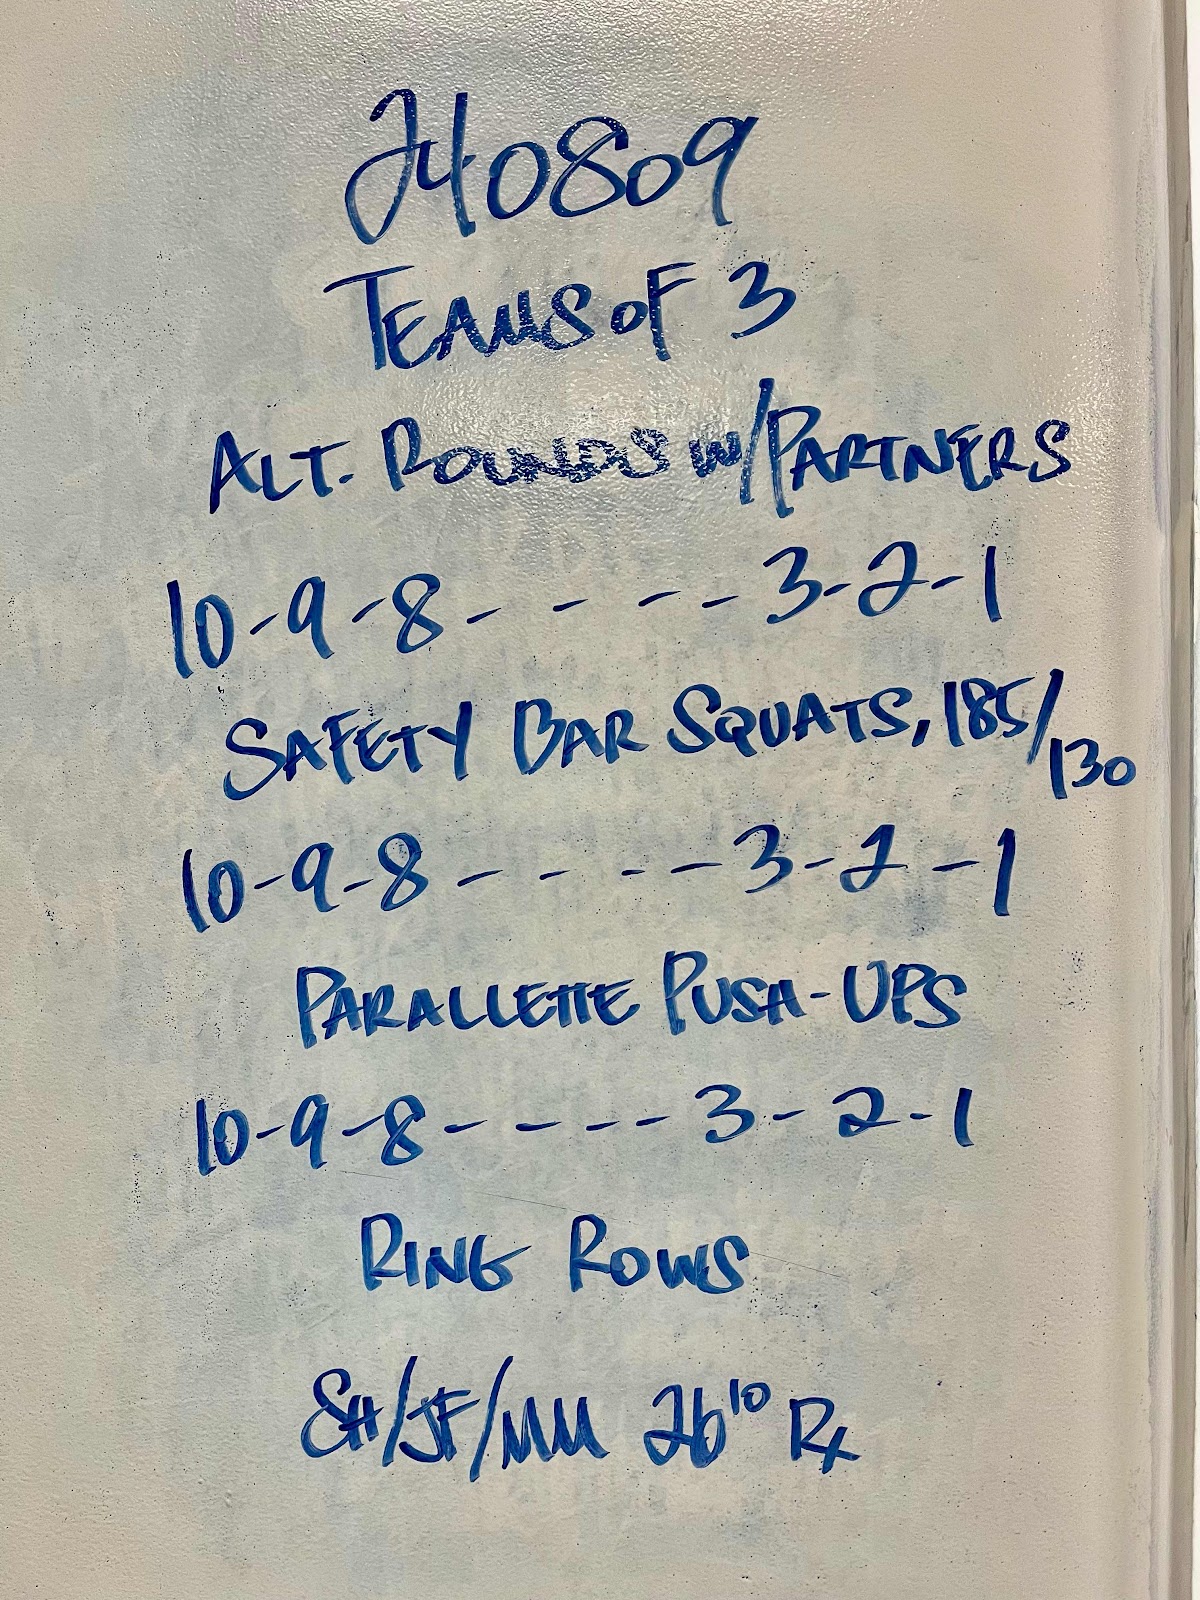 240809
TEAMS OF 3
ALT. ROUNDS W/PARTNERS
10-9-8- - - - 3-2-1
SAFETY BAR SQUATS, 185/130
10-9-8- - - - 3-2-1
PARALLETTE PUSH-UPS
10-9-8- - - - 3-2-1
RING ROWS
SH/JF/MM 26¹⁰ Rx